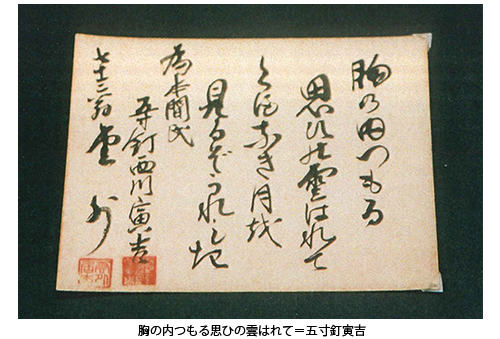 胸乃内つもる
思ひの雲はれて
くまなき月越
見るぞうれしき
為本間氏
五寸釘西川寅吉
七十三翁
胸の内つもる思ひの雲はれて=五寸釘寅吉